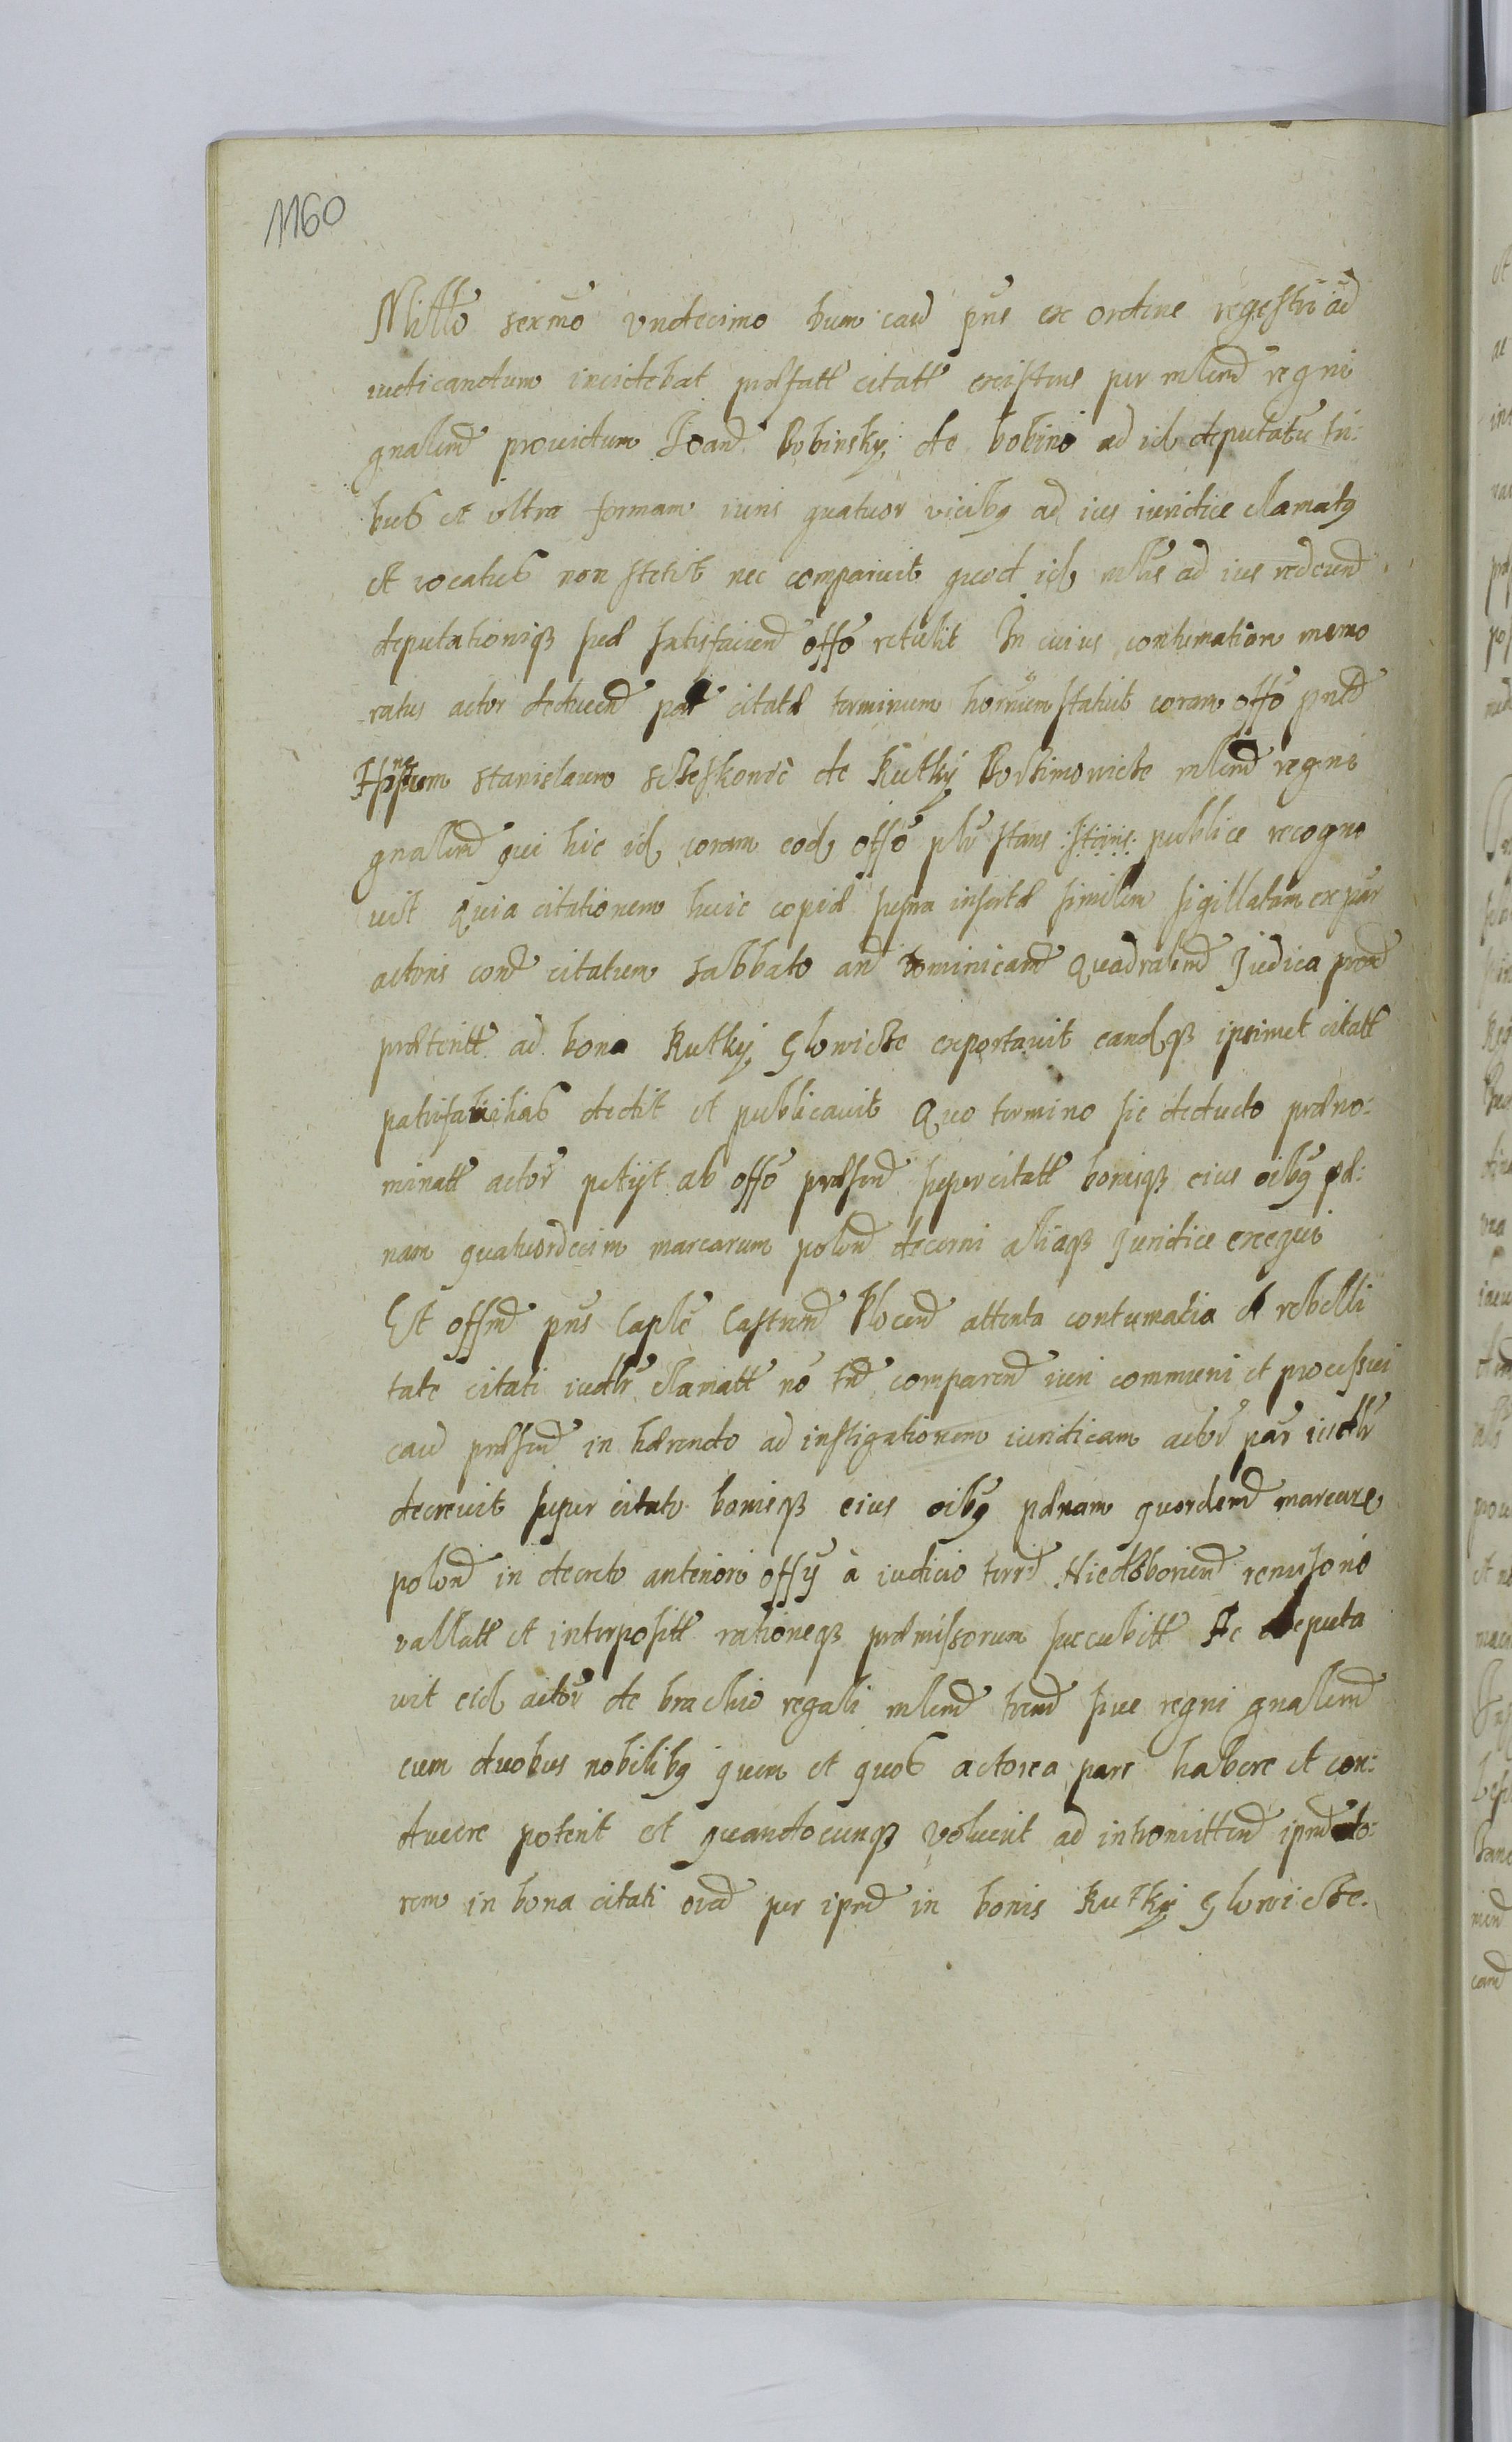 1160
Millo sexmo vndecimo dum cau pns ex ordine regestri ad
iudicandum incidebat præfatt citatt existens per mlem regni
gnalem prouidum Joan Bobinsky de bobino ad id deputatu tri:
bus et vltra formam iuris quatuor vicibq ad ius iuridice clamatq
et vocatus non stetit nec comparuit quod id mlis ad ius reddeund
deputationiq suæ satisfaciend offo retulit In cuius contumatiam memo
ratus actor deducend citatæ terminum hornum statuit coram offo pnte
stanislaum de Rutky mlem regni
gnalem qui hic id coram eod offo plr stans publice recogno
uit Quia citationem huic copiæ supra insertæ similem sigillatam ex par
actoris con citatum sabbato an dominicam Quadralem Judica prox
præteritt ad bona Rutky Glowicze exportauit eandq ipsimet citatt
patrifamilias dedit et publicauit Quo termino sic deducto præno:
minatt actor petijt ab offo præsen super citatt bonisq eius oibq pæ:
nam quatuordecim marcarum polon decerni aliaq juridice exequi
Et offm pns Caple Castren Plocen attenta contumatia et rebelli
tate citati iudlr clamatt no tn comparen iuri communi et processui
cau præsen in hærendo ad instigationem iuridicam actor par iudlr
decreuit super citato bonisq eius oibq pænam quordem marcarz
polon in decreto anteriori offy à iudicio terr Niedzborien remissorio
vallatt et interpositt rationeq præmissorum succubitt Ac deputa
uit eid actor de brachio regali mlem tren siue regni gnalem
cum duobus nobilibq quem et quos actorea pars habere et con:
ducere poterit et quandocunq voluerit ad intromittend ipm acto:
rem in bona citati oia per ipm in bonis Rutky Glowicze.